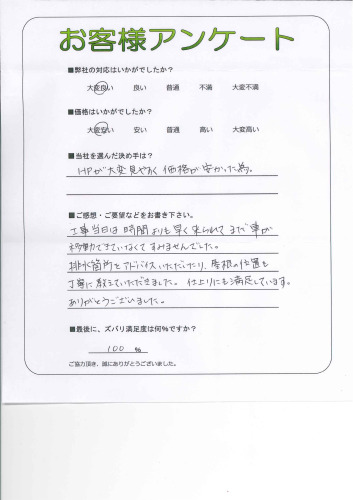 お客様アンケート
■弊社の対応はいかがでしたか?
大変良い 良い 普通 不満 大変不満
■価格はいかがでしたか?
大変安い 安い 普通 高い 大変高い
■当社を選んだ決め手は?
HPが大変見やすく価格が安かった為。
■ご感想・ご要望などをお書き下さい。
工事当日は時間よりも早く来られてまだ車が
移動できていなくてすみませんでした。
排水箇所をアドバイスいただいたり、屋根の位置も
丁寧に教えていただきました。仕上りにも満足しています。
ありがとうございました。
■最後に、ズバリ満足度は何%ですか?
100 %
ご協力頂き、誠にありがとうございました。